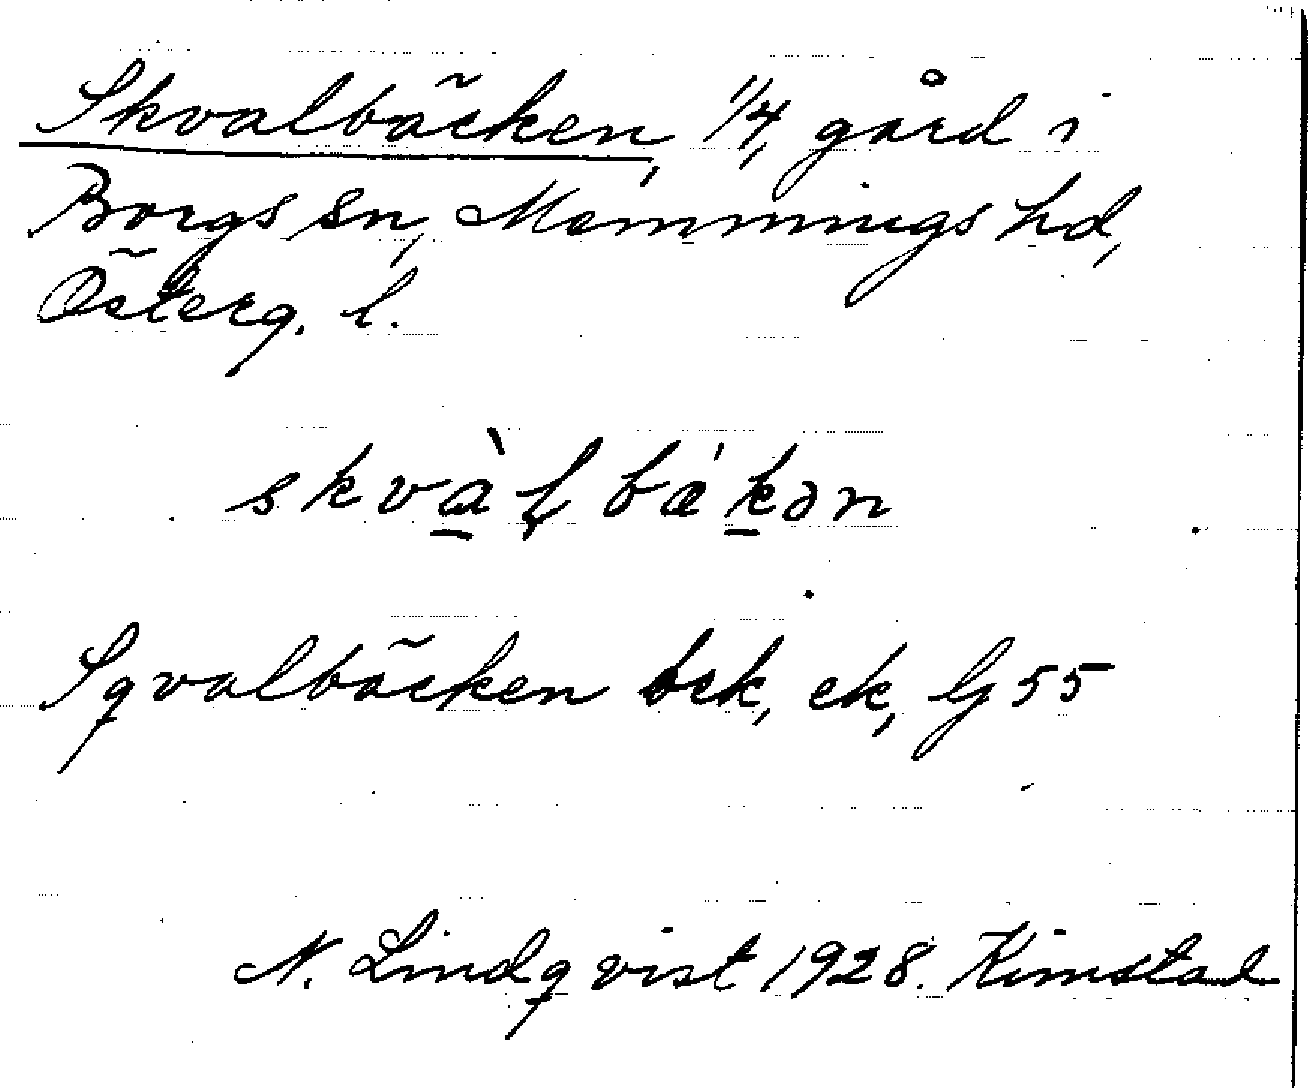 Skvalbäcken, 1/4, gård i
Borgs sn, Memmings hd,
Österg. l.
skvàɫbákən
Sqvalbäcken bek, ek, G 55
N. Lindqvist 1928. Kimstad